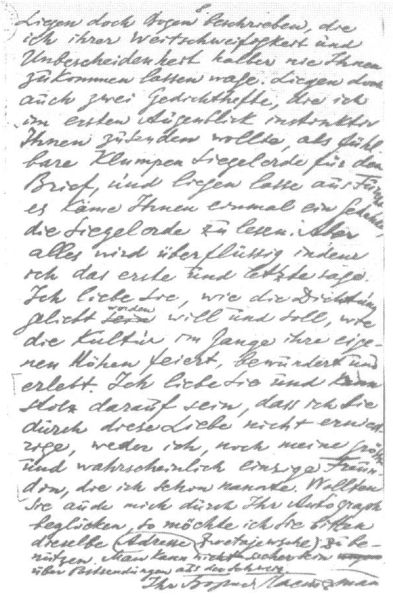 Liegen doch Bogen beschrieben, die
ich ihrer Weitschweifigkeit und
Unbescheidenheit halber nie Ihnen
zukommen lassen wage. Liegen doch
auch zwei Gedichthefte, die ich
im ersten Augenblick instinktiv
Ihnen zusenden wollte, als fühl-
bare Klumpen Siegelerde für den
Brief, und liegen lasse aus Furcht
es käme Ihnen einmal ein Gedanke,
die Siegelerde zu lesen. Aber
alles wird überflüssig indem
ich das erste und letzte sage.
Ich liebe Sie, wie die Dichtung
geliebt werden will und soll, wie
die Kultur im Gange ihre eige-
nen Höhen feiert, bewundert und
erlebt. Ich liebe Sie und kann
stolz darauf sein, dass ich Sie
durch diese Liebe nicht ernied-
rige, weder ich, noch meine größte
und wahrscheinlich einzige Freun-
din, die ich schon nannte. Wollten
Sie auch mich durch Ihr Autograph
beglücken, so möchte ich Sie bitten
dieselbe Adresse (Zwetajewsche) zu be-
nutzen. Man kann nicht sicher sein
über Postsendungen aus der Schweiz.
Ihr Boris Pasternak